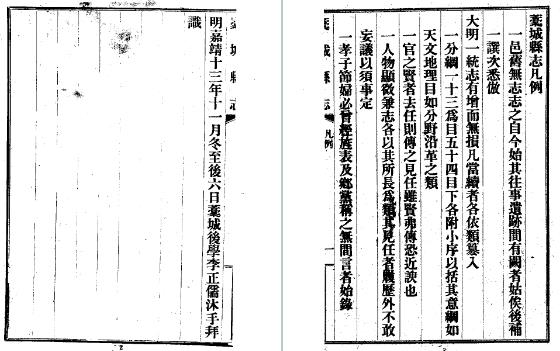 藁城縣志凡例
一邑舊無志志之自今始其往事遺跡間有闕者姑俟後補
一譔次悉倣
大明一統志有增而無損凡當續者各依類纂入
一分綱一十三爲目五十四目下各附小序以括其意綱如
天文地理目如分野沿革之類
一官之賢者去任則傳之見任雖賢弗傳恐近諛也
一人物顯微兼志各以其所長爲類其見任者履歷外不敢
妄議以須事定
一孝子節婦必曾經旌表及鄉黨稱之無間言者始錄
藁城縣志 凡例 一
城縣志
明嘉靖十三年十一月冬至後六日藁城後學李正儒沐手拜
識